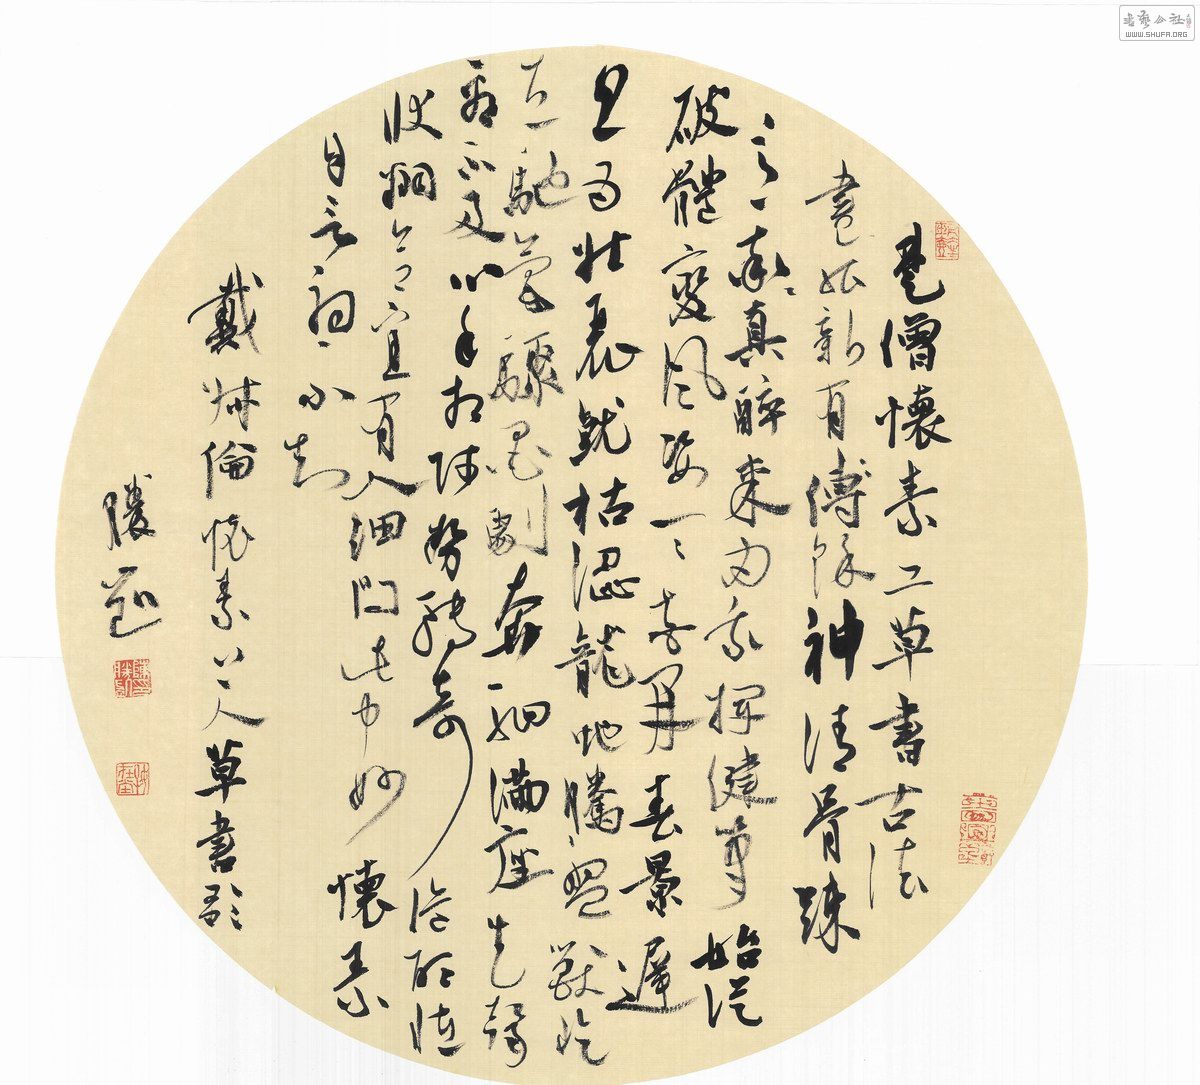 楚僧懷素工草書古法
盡能新有餘神清骨竦
意率真醉來為我揮健筆始從
破體變風姿一一花開春景遲
忽為壯麗就枯澀龍蛇騰盤獸屹
立馳毫驟墨劇奔駟滿座失聲
看不及心手相師勢轉奇詭形怪
狀翻合宜有人細問此中妙懷素
自言初不知
戴叔倫懷素上人草書歌
勝
书艺公社
WWW.SHUFA.ORG